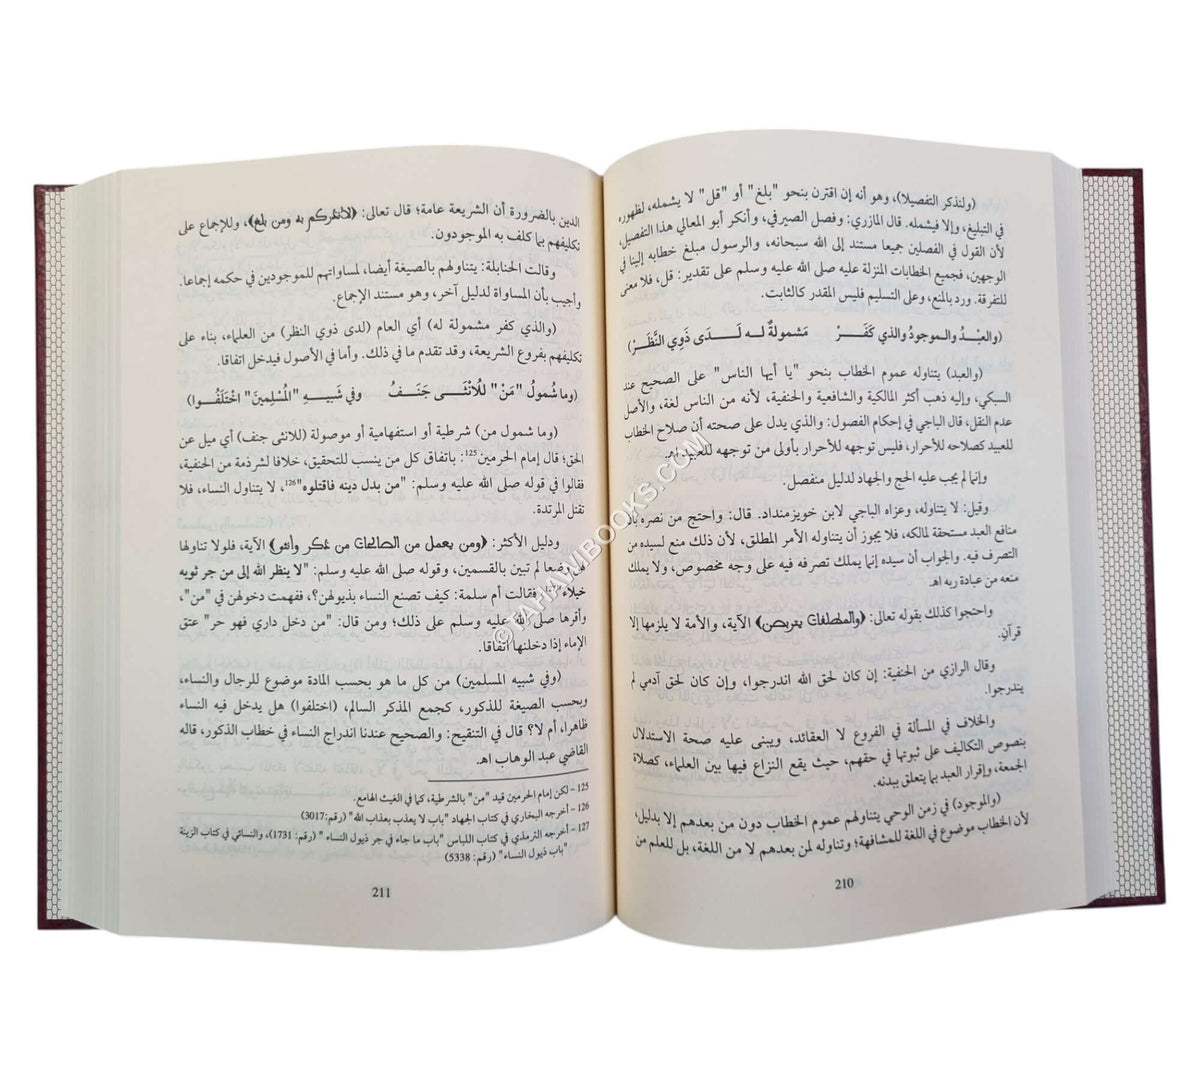 (ولنذكر التفصيلا)، وهو أنه إن اقترن بنحو "بلغ" أو "قل" لا يشمله، لظهوره
في التبليغ، وإلا فيشمله. قال المازري: وفصل الصيرفي، وأنكر أبو المعالي هذا التفصيل،
لأن القول في الفصلين جميعا مستند إلى الله سبحانه، والرسول مبلغ خطابه إلينا في
الوجهين، فجميع الخطابات المنزلة عليه صلى الله عليه وسلم على تقدير: قل، فلا معنى
للتفرقة. ورد بالمنع، وعلى التسليم فليس المقدر كالثابت.
(والعبْدُ والموجودُ والذي كَفَرْ مَشمولةٌ له لَدَى ذَوِي النَّظَرْ)
(والعبد) يتناوله عموم الخطاب بنحو "يا أيها الناس" على الصحيح عند
السبكي، وإليه ذهب أكثر المالكية والشافعية والحنفية، لأنه من الناس لغة، والأصل
عدم النقل، قال الباجي في إحكام الفصول: والذي يدل على صحته أن صلاح الخطاب
للعبيد كصلاحه للأحرار، فليس توجهه للأحرار بأولى من توجهه للعبيد اهـ
وإنما لم يجب عليه الحج والجهاد لدليل منفصل.
وقيل: لا يتناوله، وعزاه الباجي لابن خويزمنداد. قال: واحتج من نصره بأن
منافع العبد مستحقة لمالكه، فلا يجوز أن يتناوله الأمر المطلق، لأن ذلك منع لسيده من
التصرف فيه. والجواب أن سيده إنما يملك تصرفه فيه على وجه مخصوص، ولا يملك
منعه من عبادة ربه اهـ
واحتجوا كذلك بقوله تعالى: ﴿والمطلقات يتربصن﴾ الآية، والأمة لا يلزمها إلا
قرآن.
وقال الرازي من الحنفية: إن كان لحق الله اندرجوا، وإن كان لحق آدمي لم
يندرجوا.
والخلاف في المسألة في الفروع لا العقائد، وينبى عليه صحة الاستدلال
بنصوص التكاليف على ثبوتها في حقهم، حيث يقع النزاع فيها بين العلماء، كصلاة
الجمعة، وإقرار العبد بما يتعلق ببدنه.
(والموجود) في زمن الوحي يتناولهم عموم الخطاب دون من بعدهم إلا بدليل،
لأن الخطاب موضوع في اللغة للمشافهة؛ وتناوله لمن بعدهم لا من اللغة، بل للعلم من
210
الدين بالضرورة أن الشريعة عامة؛ قال تعالى: ﴿لأنذركم به ومن بلغ﴾، وللإجماع على
تكليفهم بما كلف به الموجودون.
وقالت الحنابلة: يتناولهم بالصيغة أيضا، لمساواتهم للموجودين في حكمه إجماعا.
وأجيب بأن المساواة لدليل آخر، وهو مستند الإجماع.
(والذي كفر مشمولة له) أي العام (لدى ذوي النظر) من العلماء، بناء على
تكليفهم بفروع الشريعة، وقد تقدم ما في ذلك. وأما في الأصول فيدخل اتفاقا.
(وما شُمولُ "مَنْ" للأنْثَى جَنَفُ وفي شَبيهِ "المُسْلمِينَ" اخْتَلَفُوا)
(وما شمول من) شرطية أو استفهامية أو موصولة (للانثى جنف) أي ميل عن
الحق؛ قال إمام الحرمين125: باتفاق كل من ينسب للتحقيق، خلافا لشرذمة من الحنفية،
فقالوا في قوله صلى الله عليه وسلم: "من بدل دينه فاقتلوه"126، لا يتناول النساء، فلا
تقتل المرتدة.
ودليل الأكثر: ﴿ومن يعمل من الصالحات من ذكر وأنثى﴾ الآية، فلولا تناولها
وضعا لم تبين بالقسمين، وقوله صلى الله عليه وسلم: "لا ينظر الله إلى من جر ثوبه
خيلاء"، فقالت أم سلمة: كيف تصنع النساء بذيولهن؟، ففهمت دخولهن في "من"،
وأقرها صلى الله عليه وسلم على ذلك؛ ومن قال: "من دخل داري فهو حر" عتق
الإماء إذا دخلنها اتفاقا.
(وفي شبيه المسلمين) من كل ما هو بحسب المادة موضوع للرجال والنساء،
وبحسب الصيغة للذكور، كجمع المذكر السالم، (اختلفوا) هل يدخل فيه النساء
ظاهرا، أم لا؟ قال في التنقيح: والصحيح عندنا اندراج النساء في خطاب الذكور، قاله
القاضي عبد الوهاب اهـ
125 – لكن إمام الحرمين قيد "من" بالشرطية، كما في الغيث الهامع.
126 – أخرجه البخاري في كتاب الجهاد "باب لا يعذب بعذاب الله" (رقم:3017)
127 – أخرجه الترمذي في كتاب اللباس "باب ما جاء في جر ذيول النساء " (رقم: 1731)، والنسائي في كتاب الزينة
"باب ذيول النساء" (رقم: 5338)
211
© TAHAWIBOOKS.COM